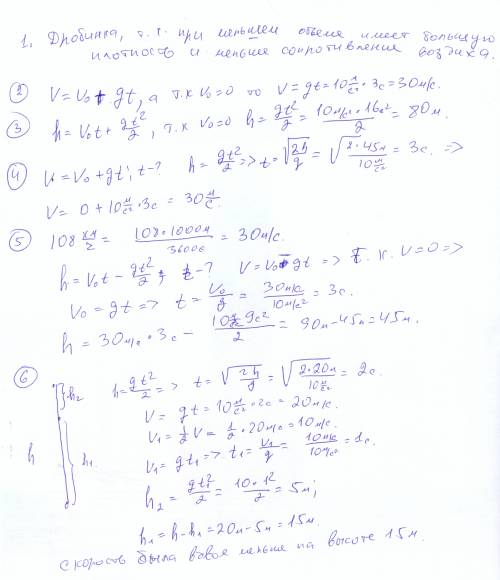 1. Дробинка, т.к. при меньшем объеме имеет большую
плотность и меньше сопротивление воздуха.
② V = V₀ + gt, а т.к V₀=0 то V = gt = 10 м/с² · 3с = 30 м/с.
③ h = V₀t + gt²/2, т.к V₀=0 h = gt²/2 = 10м/с² · 16с²/2 = 80м.
④ V = V₀ + gt; t-? h = gt²/2 => t = √(2h/g) = √(2·45м/10 м/с²) = 3с. =>
V = 0 + 10 м/с² · 3с = 30 м/с.
⑤ 108 км/ч = 108·1000м/3600с = 30 м/с.
h = V₀t − gt²/2; t-? V = V₀ − gt => т.к. V=0 =>
V₀ = gt => t = V₀/g = 30м/с/10м/с² = 3с.
h = 30м/с · 3с − 10 · 9с²/2 = 90м − 45м = 45м.
⑥ h = gt²/2 => t = √(2h/g) = √(2·20м/10 м/с²) = 2с.
h₂
V = gt = 10 м/с² · 2с = 20м/с.
V₁ = ½ V = ½ · 20м/с = 10м/с.
h
h₁
V₁ = gt₁ => t₁ = V₁/g = 10м/с/10м/с² = 1с.
h₂ = gt₁²/2 = 10·1²/2 = 5м;
h₁ = h − h₁ = 20м − 5м = 15м.
Скорость была вдвое меньше на высоте 15м.